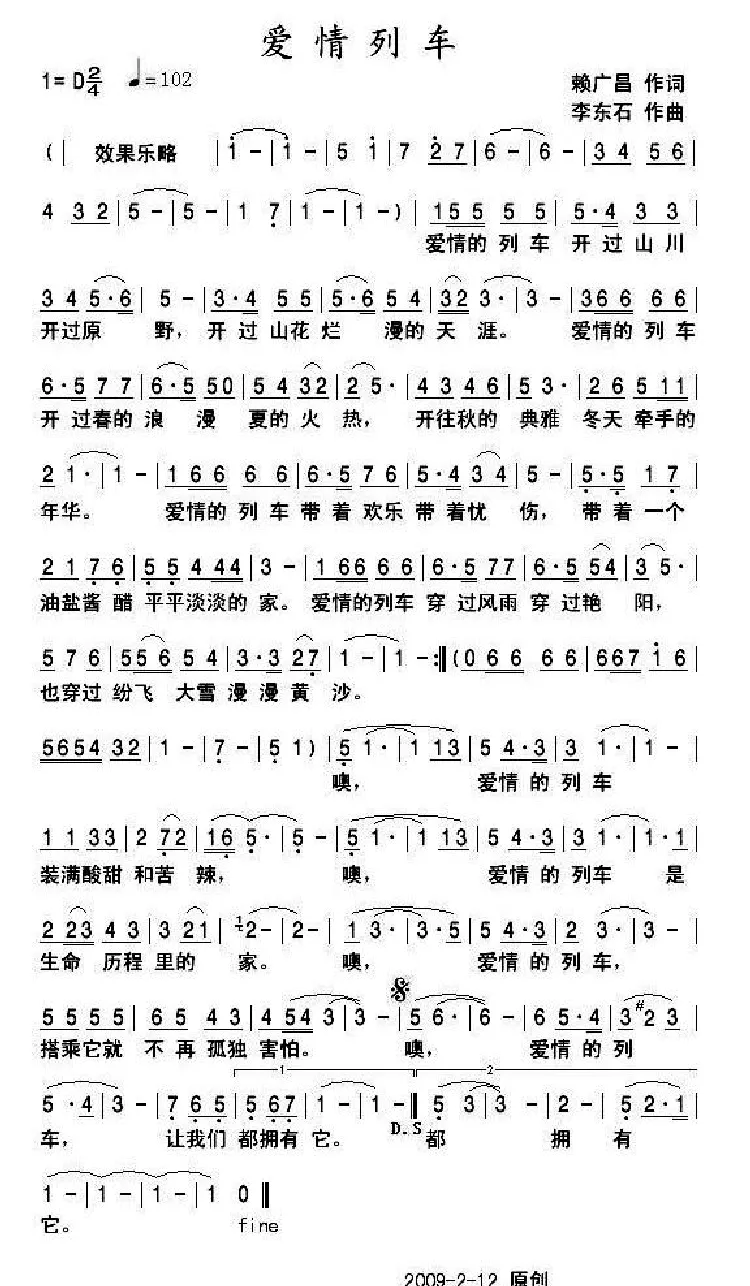 爱情列车
1=D2/4 ♩=102
赖广昌 作词
李东石 作曲
( | 效果乐略 | 1 - | 1 - | 5 1 | 7 27 | 6 - | 6 - | 34 56 |
4 32 | 5 - | 5 - | 1 7 | 1 - | 1 - ) | 155 5 5 | 5·4 3 3 |
爱情的 列 车 开 过 山 川
3 4 5·6 | 5 - | 3·4 55 | 5·6 54 | 32 3· | 3 - | 366 66 |
开过原 野，开 过 山花 烂 漫的 天 涯。 爱情的 列 车
6·5 77 | 6·5 50 | 54 32 | 2 5· | 43 46 | 5 3· | 26 5 11 |
开 过春的 浪 漫 夏的 火 热， 开往秋的 典雅 冬天 牵手的
2 1· | 1 - | 166 6 6 | 6·5 76 | 6·5 34 | 5 - | 5·5 17 |
年华。 爱情的 列 车 带 着 欢乐 带 着忧 伤， 带 着 一 个
21 76 | 55 444 | 3 - | 166 66 | 6·5 77 | 6·5 554 | 3 5· |
油盐酱 醋 平平淡淡的 家。爱情的列车 穿 过风雨 穿 过艳 阳，
5 76 | 556 54 | 3·3 27 | 1 - | 1 - :‖ (06 66 | 667 16 |
也穿过 纷飞 大雪 漫 漫 黄 沙。
5654 32 | 1 - | 7 - | 5 1 ) | 5 1· | 1 13 | 5 4·3 | 3 1· | 1 - |
噢， 爱情 的 列 车
11 33 | 2 72 | 16 5· | 5 - | 5 1· | 1 13 | 5 4·3 | 3 1· | 1·1 |
装满酸甜 和苦 辣， 噢， 爱情 的 列车 是
2 23 43 | 3 321 | 2 - | 2 - | 1 3· | 3·5 | 5 4·3 | 2 3· | 3 - |
生命 历程 里的 家。 噢， 爱情 的 列 车，
55 55 | 65 43 | 4 54 3 | 3 - | 5 6· | 6 - | 6 5·4 | 3 #2 3 |
搭乘它就 不 再 孤独 害怕。 噢， 爱情 的 列
1 2
5·4 | 3 - | 7 65 | 5 67 | 1 - | 1 - ‖ 5 3 | 3 - | 2 - | 5 2·1 |
D.S
车， 让我们 都拥有 它。 都 拥 有
1 - | 1 - | 1 - | 1 0 ‖
它。 fine
2009-2-12 原创